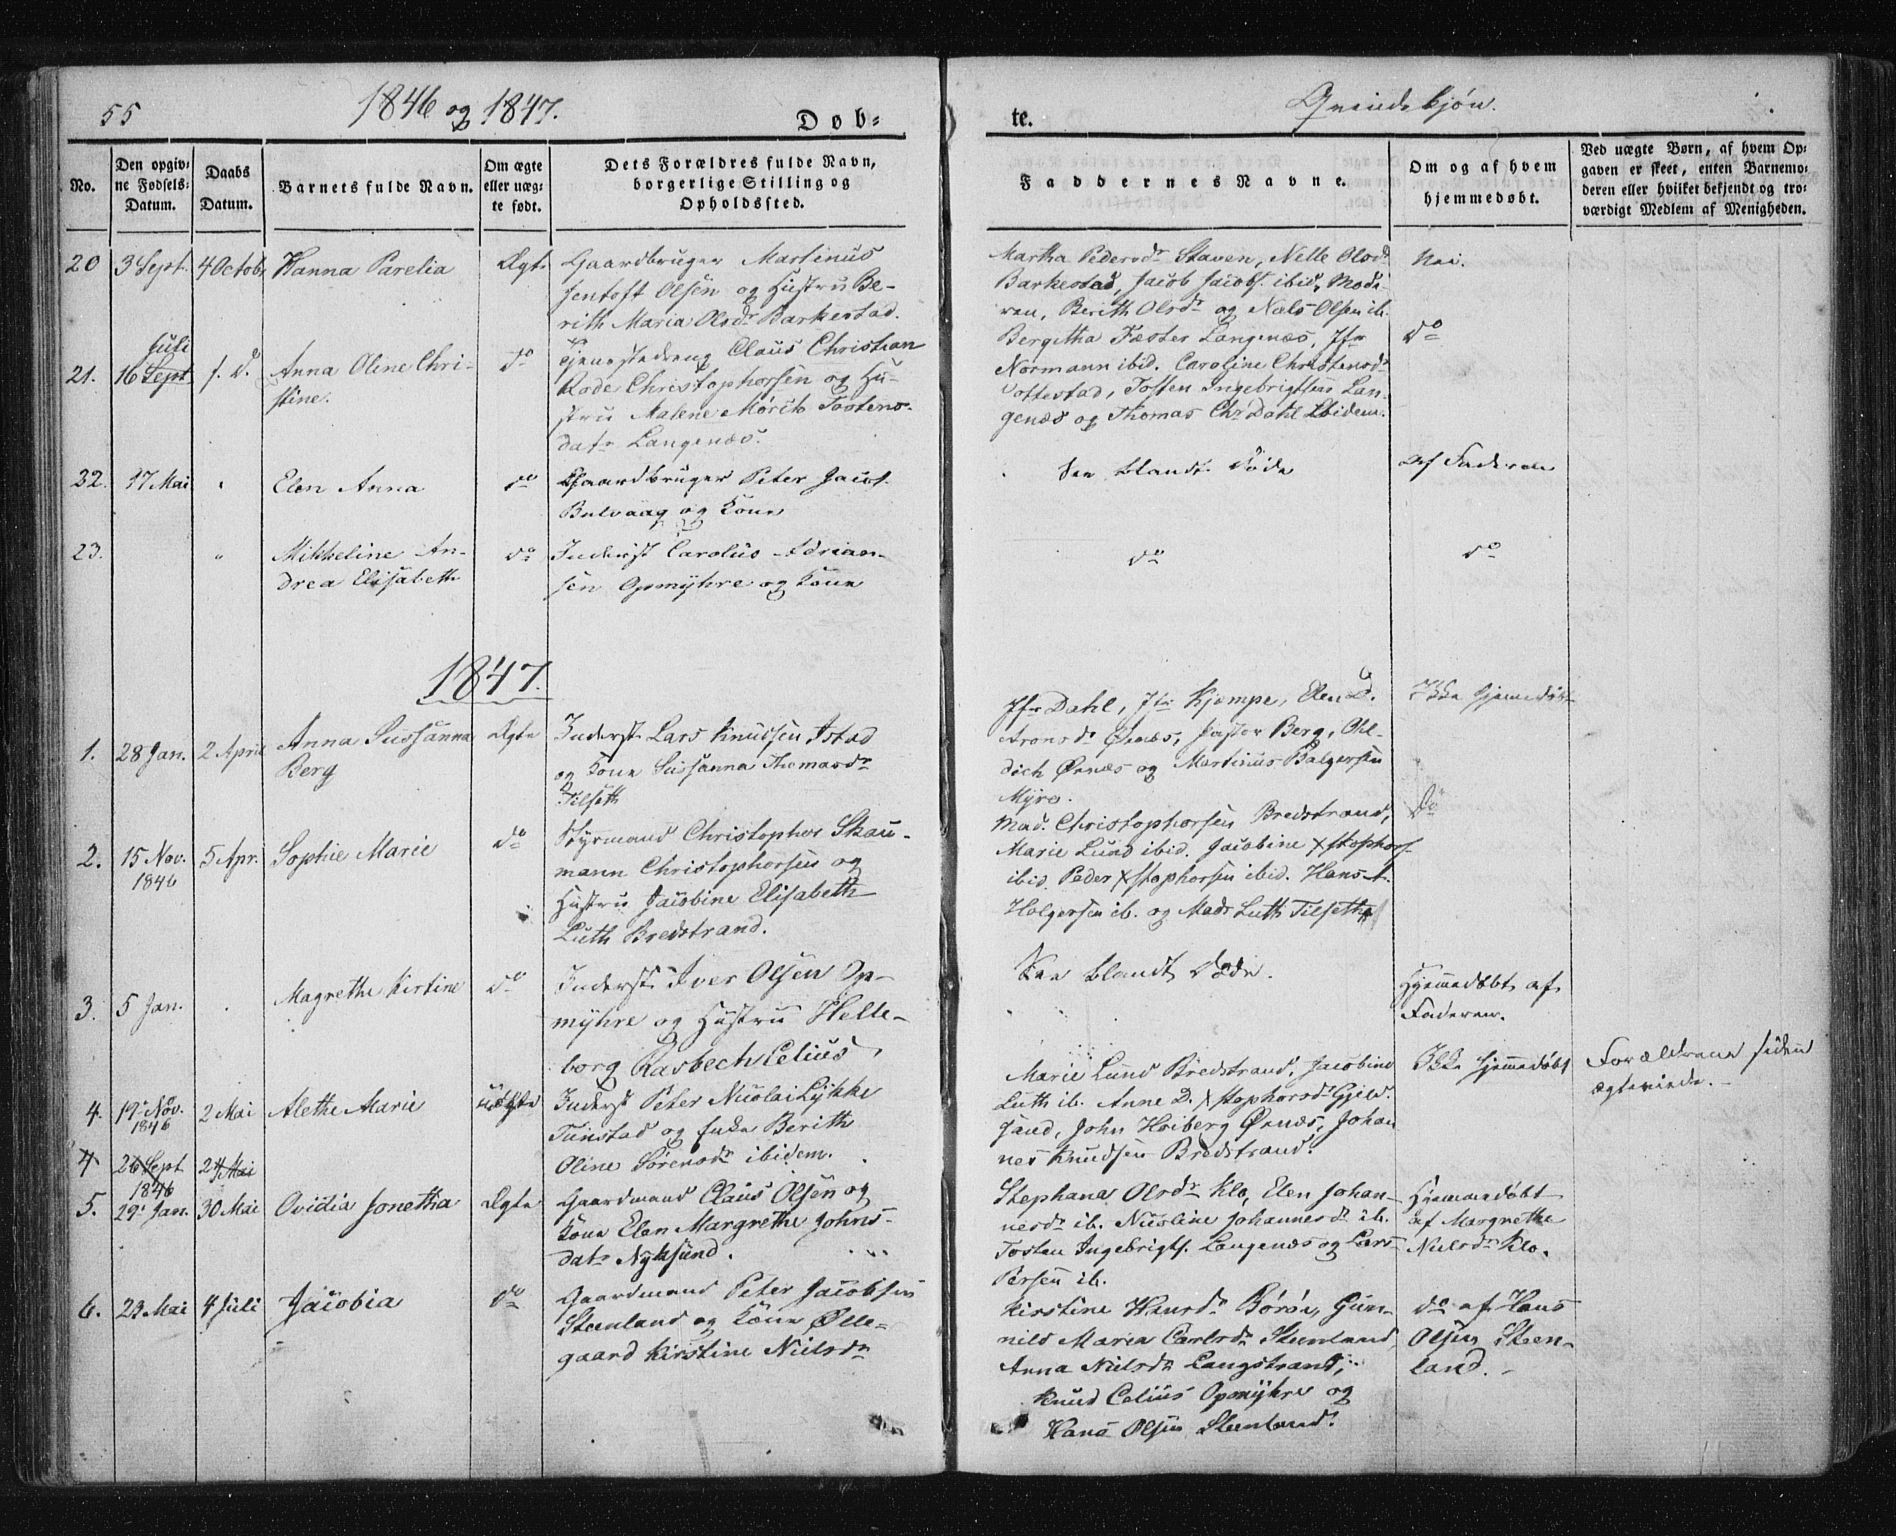 55
1846 og 1847.
Døb-
te.
Qvindekjøn.
No.
Den opgiv-
ne Fødsels-
Datum.
Daabs
Datum.
Barnets fulde Navn.
Om ægte
eller uæg-
te født.
Dets Forældres fulde Navn,
borgerlige Stilling og
Opholdssted.
Faddernes Navne.
Om og af hvem
hjemmedøbt.
Ved uægte Børn, af hvem Op-
gaven er skeet, enten Barnemo-
deren eller hvilket bekjendt og tro-
værdigt Medlem af Menigheden.
20 3 Sept. 4 Octobr Hanna Parelia Ægte Gaardbruger Martinus
Jentoft Olsen og Hustru Be-
rith Maria Olsdr Barkestad.
Martha Pedersdr Staven, Nelle Olsdr
Barkestad, Jacob Jacobs. ibid,
Berith Olsdr og Niels Olsen ib.
Nei.
21. 16 Sept Juli s. d. Anna Oline Chri-
stine.
do Tjenestedreng Claus Christian
Rode Christophersen og Hu-
stru Malene Mørch Tostens-
datr Langenæs.
Bergitha Fæster Langenæs, Jfr
Normann ibid. Caroline Christensdr
Tosten Ingebrigtsen Lan-
genæs og Thomas Chr. Dahl Ibidem.
do
22. 17 Mai " Elen Anna do Gaardbruger Peter Jacobs.
og Kone
See blandt Døde
af Faderen
23. " Mikkeline An-
drea Elisabeth
do Inderst Carolus Adrian-
sen Opmyhre og Kone
do
do
1847.
1. 28 Jan. 2 April Anna Sussanna
Berg
Ægte Inderst Lars Knudsen Istad
og Kone Sussanna Thomasdr
Tilseth
Jfr Dahl, Jfr Kjempe, Elen D.
Aronsdr Ørnæs, Pastor Berg,
Ørnæs og Martinus Balgersen
Myre.
Ikke hjemmedøbt
2. 15 Nov.
1846
5 Apr. Sophie Marie do Styrmand Christopher Skau-
mann Christophersen og
Hustru Jacobine Elisabeth
Luth Bredstrand.
Mad. Christophersen Bredstrand,
Marie Lund ibid. Jacobine Xstophers.
ibid. Peder Xstophersen ibid. Hans A.
Holgersen ib. og Mads Luth Tilseth
Do
3. 5 Jan. Magrethe Kirstine do Inderst Iver Olsen Op-
myhre og Hustru Helle-
borg Rasbech Celius
See blandt Døde.
Hjemmedøbt af
Faderen.
4. 19. Nov.
1846
2 Mai Alethe Marie Uægte Inderst Peter Nicolai Lykke
Tunstad og Enke Berith
Oline Sørensdr ibidem.
Marie Lund Bredstrand, Jacobine
Luth ib. Anne D. Xstophersdr Gjeld-
sand, John Hoiberg Ørnæs, Johan
nes Knudsen Bredstrand.
Ikke hjemmedøbt
Forældrene siden
ægteviede.
4 26 Sept
1846
24 Mai
5. 29. Jan. 30 Mai Ovidia Jonetha Ægte Gaardmand Claus Olsen og
Kone Elen Margrethe Johns-
datr Nyksund.
Stephana Olsdr Klo, Elen Johan-
nesdr ib. Nicoline Johannesdr ib.
Tosten Ingebrigts. Langenæs og Lars
Persen ib.
Hjemmedøbt
af Margrethe
Nielsdr Klo.
6. 23 Mai 4 Juli Jacobia do Gaardmand Peter Jacobsen
Steenland og Kone Ølle-
gaard Kirstine Nielsdr
Kirstine Hansdr Børøe, Gun-
nild Maria Carlsdr Steenland,
Anna Nielsdr Langstrand,
Knud Celius Opmyhre og
Hans Olsen Steenland.
do af Hans
Olsen Steen-
land.